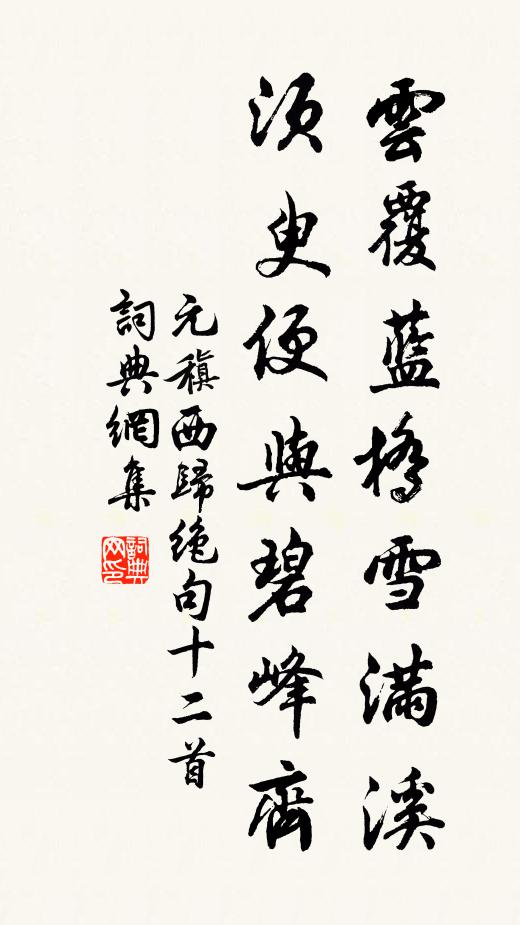 雲覆藍橋雪滿溪
須臾便與碧峰齊
元稹西歸絕句十二首
詞典網集
詞典網印